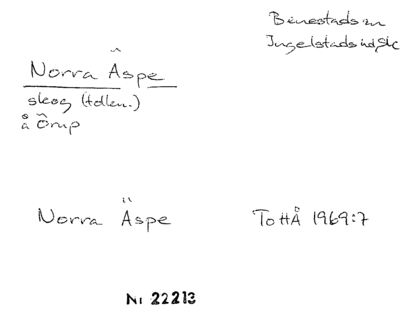 Benestads sn
Ingelstads hd, Sk
Norra Äspe
skog (tdln.)
å Örup
Norra Äspe
ToHÅ 1969:7
Nr 22213